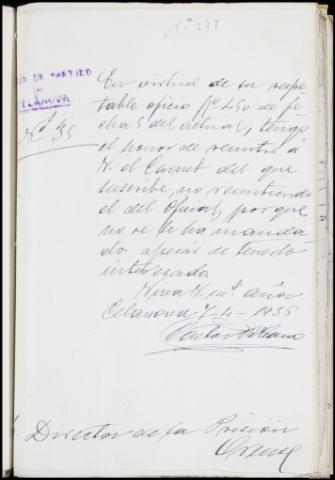 Nº 277
DE PARTIDO
CELANOVA
Nº 35
En virtud de su respe-
table oficio Nº 450 de fe-
cha 5 del actual, tengo
el honor de remitir á
V. el Carnet del que
suscribe, no remitiendo
el del Oficial, porque
no se le ha manda-
do apesar de tenerlo
interesado
Viva V. ms. años
Celanova 7-4-1936
Director de la Prisión
Orense